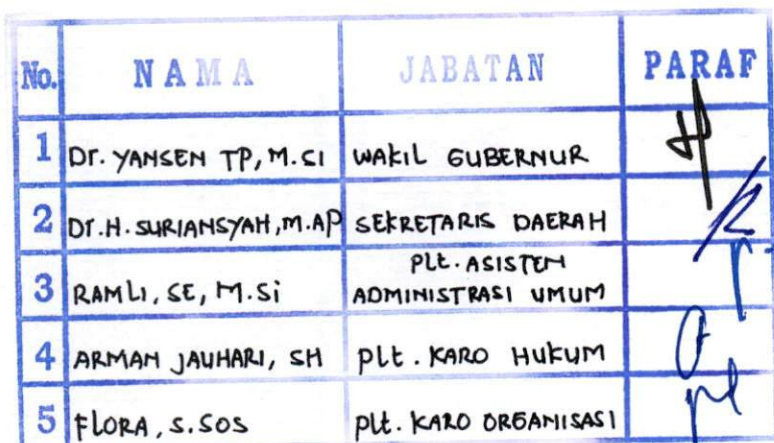 No. NAMA JABATAN PARAF
1 Dr. YANSEN TP, M.SI WAKIL GUBERNUR
2 Dr. H. SURIANSYAH, M.AP SEKRETARIS DAERAH
3 RAMLI, SE, M.Si Plt. ASISTEN
ADMINISTRASI UMUM
4 ARMAN JAUHARI, SH Plt. KARO HUKUM
5 FLORA, S.SOS Plt. KARO ORGANISASI